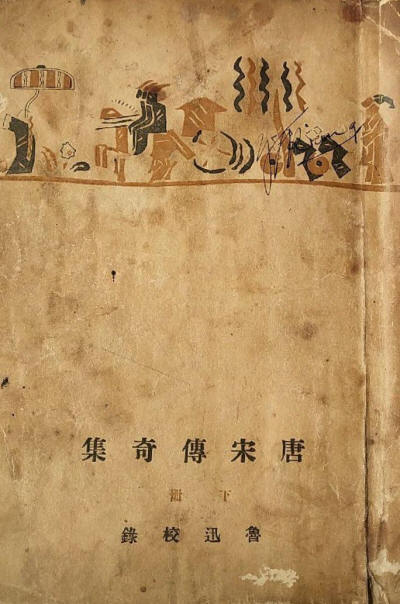 唐宋傳奇集
下冊
魯迅校錄